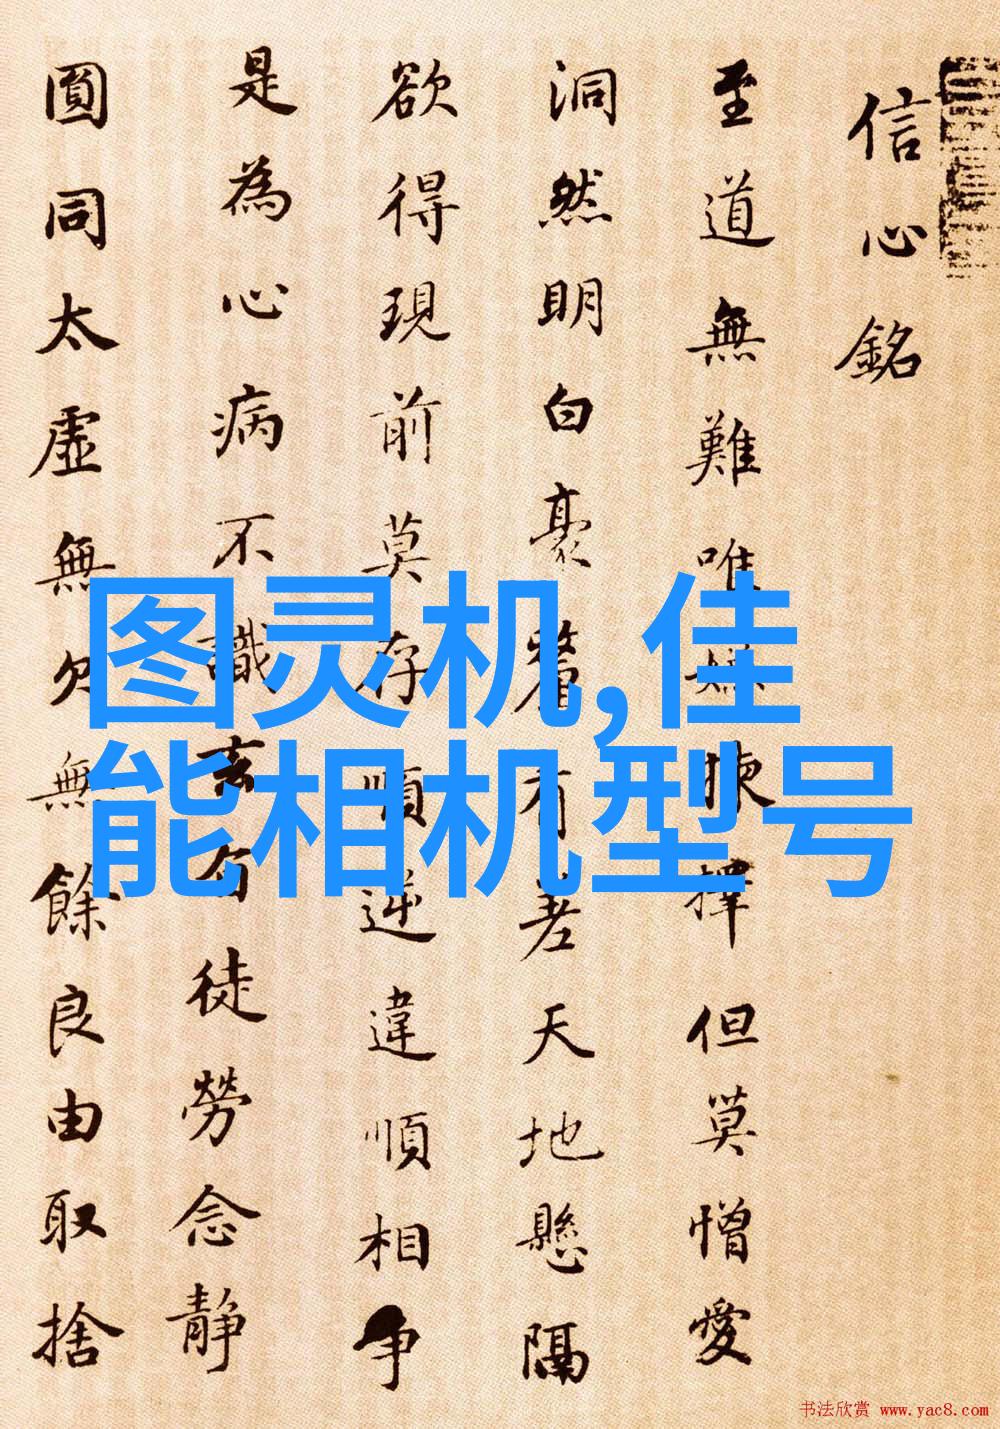 信心銘
至道無難唯嫌揀擇但莫憎愛
洞然明白豪有差天地懸隔
欲得現前莫存順逆違順相爭
是為心病不識玄旨徒勞念静
圓同太虛無欠無餘良由取捨
图灵机,佳
能相机型号
书法欣赏 www.yac8.com